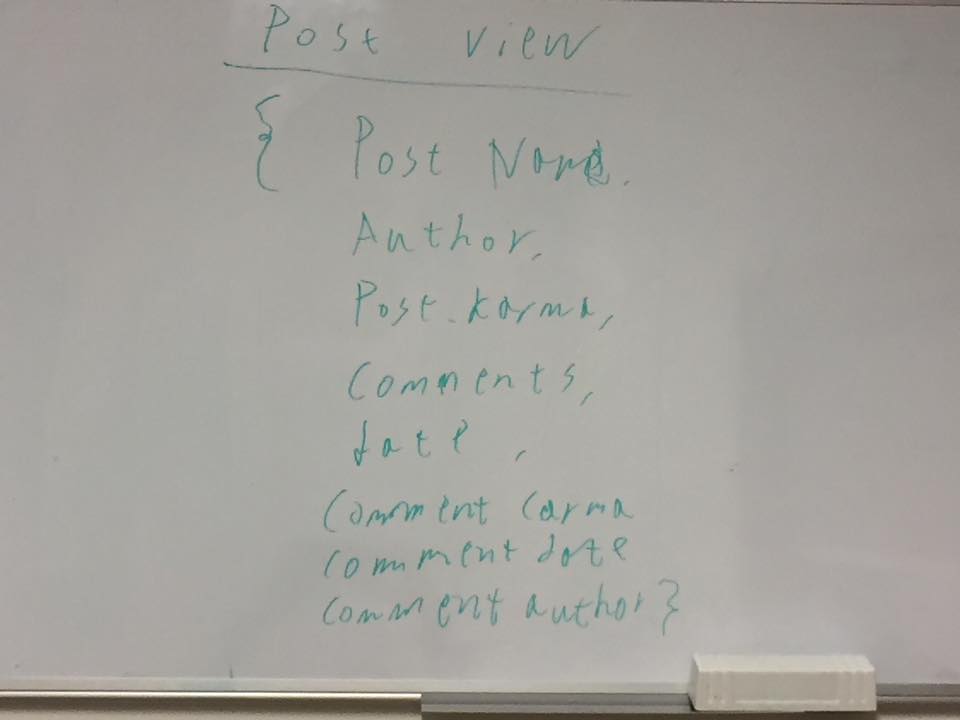 Post view
{ Post Name.
Author,
Post karma,
Comments,
date ,
Comment Carma
comment date
comment author }